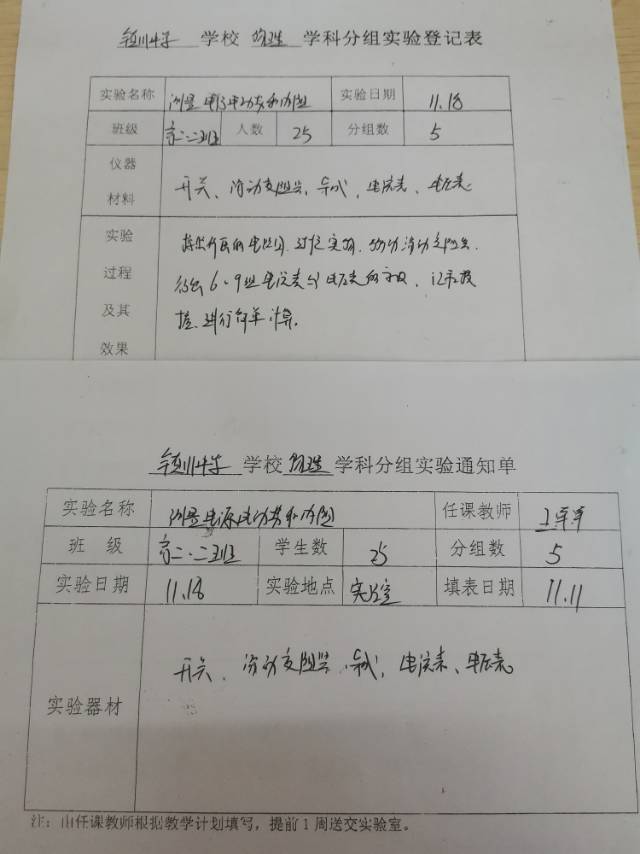 学校 物理 学科分组实验登记表
实验名称 测量电源电动势和内阻 实验日期 11.18
班级 高二.二班 人数 25 分组数 5
仪器 材料 开关、滑动变阻器、导线、电流表、电压表
实验 过程 及其 效果
6~9组电流表与电压表的示数，记录数
据，进行简单计算。
学校 物理 学科分组实验通知单
实验名称 测量电源电动势和内阻 任课教师
班 级 高二.二班 学生数 25 分组数 5
实验日期 11.18 实验地点 实验室 填表日期 11.11
实验器材 开关、滑动变阻器、导线、电流表、电压表
注：由任课教师根据教学计划填写，提前1周送交实验室。